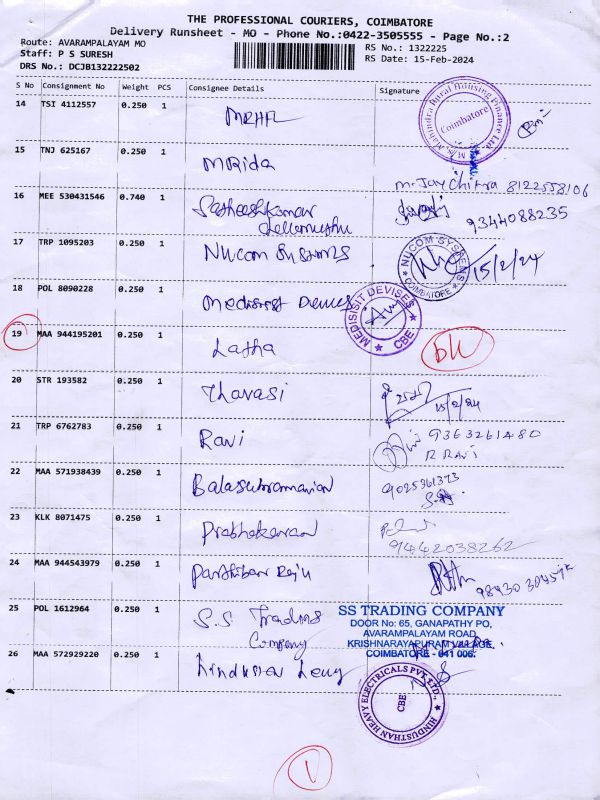 THE PROFESSIONAL COURIERS, COIMBATORE
Delivery Runsheet - MO - Phone No.:0422-3505555 - Page No.:2
Route: AVARAMPALAYAM MO
Staff: P S SURESH
DRS No.: DCJB132222502
RS No.: 1322225
RS Date: 15-Feb-2024
S No Consignment No Weight PCS Consignee Details Signature
14 TSI 4112557 0.250 1 MRHFL
Mahindra Rural Housing Finance Ltd.
Coimbatore
15 TNJ 625167 0.250 1 MRida
M. Jaychitra 8122558106
16 MEE 530431546 0.740 1 Satheeshkumar
9344088235
17 TRP 1095203 0.250 1 Nucom Systems
NUCOM SYSTEMS
COIMBATORE
15/2/24
18 POL 8090228 0.250 1 Medisist Devices
MEDISIST DEVISES
CBE
19 MAA 944195201 0.250 1 Latha
20 STR 193582 0.250 1 Thavasi
15/2/24
21 TRP 6762783 0.250 1 Ravi
9363261480
R Ravi
22 MAA 571938439 0.250 1 Balasubramanian
9025361373
23 KLK 8071475 0.250 1 Prabhakaran
9442038262
24 MAA 944543979 0.250 1 Parthiban Raju
25 POL 1612964 0.250 1 S.S Trading
Company
SS TRADING COMPANY
DOOR No: 65, GANAPATHY PO,
AVARAMPALAYAM ROAD,
KRISHNARAYAPURAM VILLAGE,
COIMBATORE - 641 006.
26 MAA 572929220 0.250 1 Hindustan Heavy
HINDUSTHAN HEAVY ELECTRICALS PVT LTD.,
CBE
1